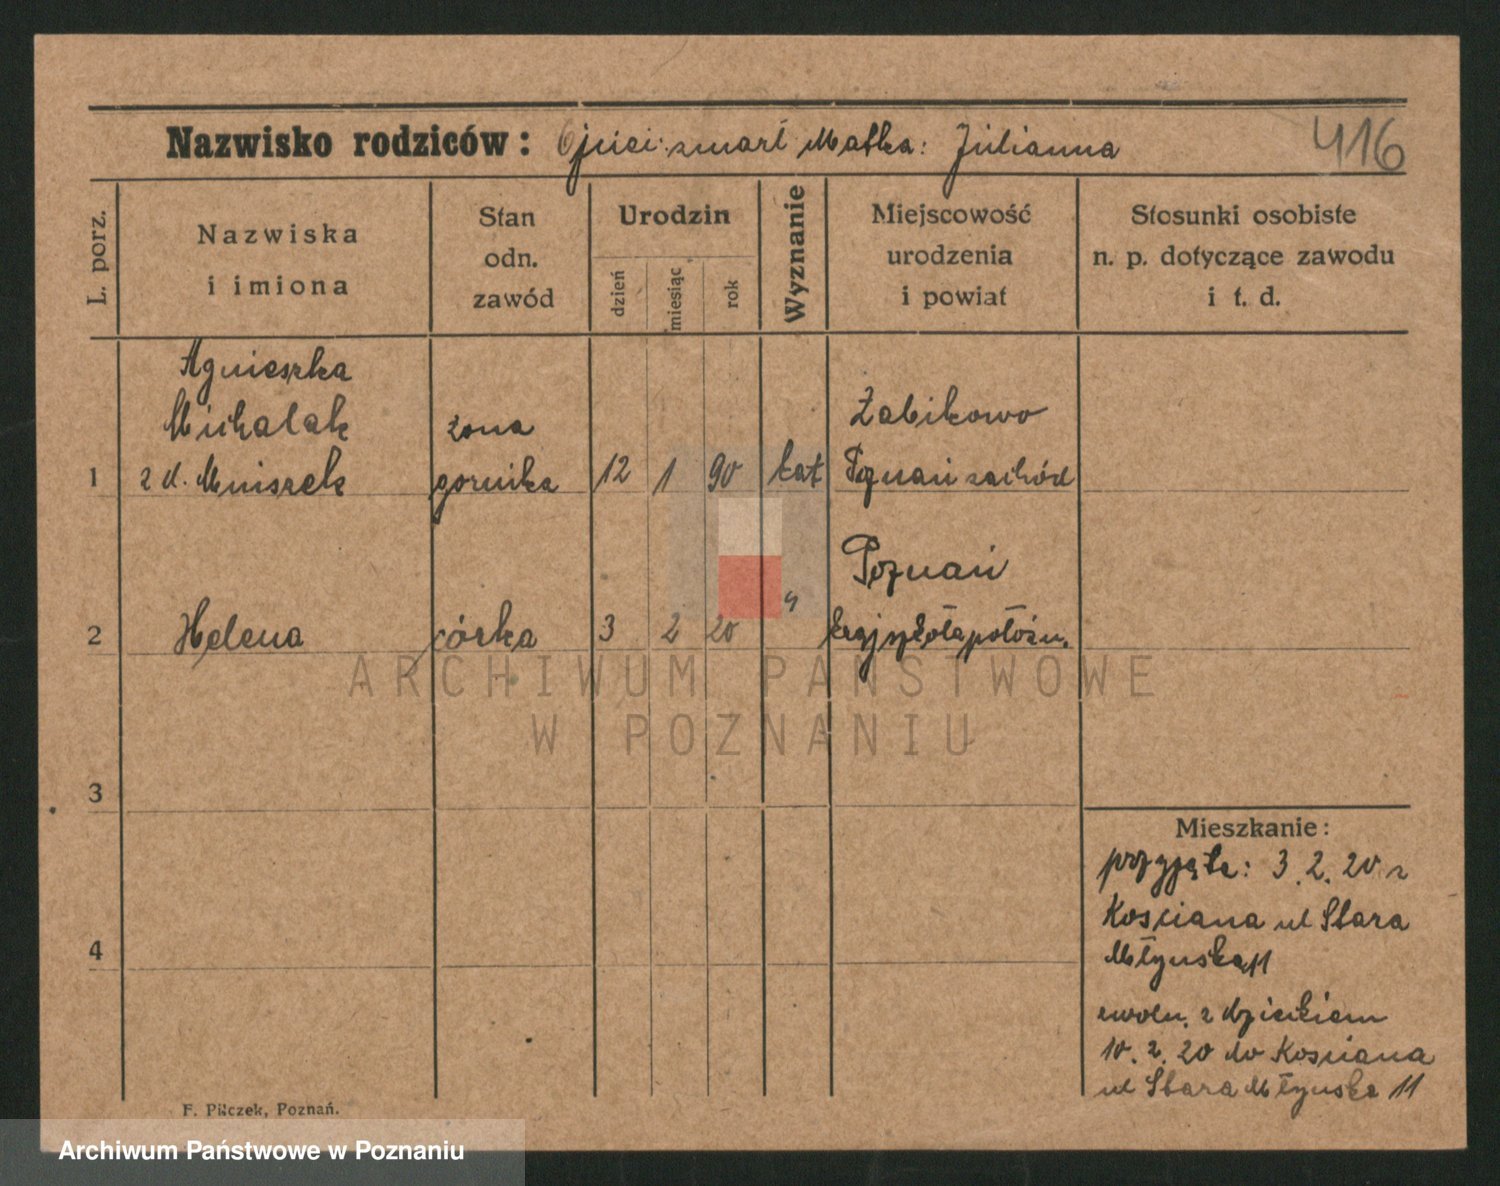 Nazwisko rodziców: Ojciec: zmarł Matka: Julianna
416
L. porz.
Nazwiska
i imiona
Stan
odn.
zawód
Urodzin
dzień
miesiąc
rok
Wyznanie
Miejscowość
urodzenia
i powiat
Stosunki osobiste
n. p. dotyczące zawodu
i t. d.
Agnieszka
Michalak
1 z d. Mniszek
żona
gornika
12 1 90 kat
Żabikowo
Poznań zachód
2 Helena córka 3 2 20 "
Poznań
kraj szkoła położn.
3
4
Mieszkanie:
przyjęta: 3. 2. 20 z
Kosciana ul Stara
Młyńska 11
zwoln. z dzieckiem
10. 2. 20 do Kosciana
ul Stara Młyńska 11
F. Pilczek, Poznań.
ARCHIWUM PAŃSTWOWE
W POZNANIU
Archiwum Państwowe w Poznaniu